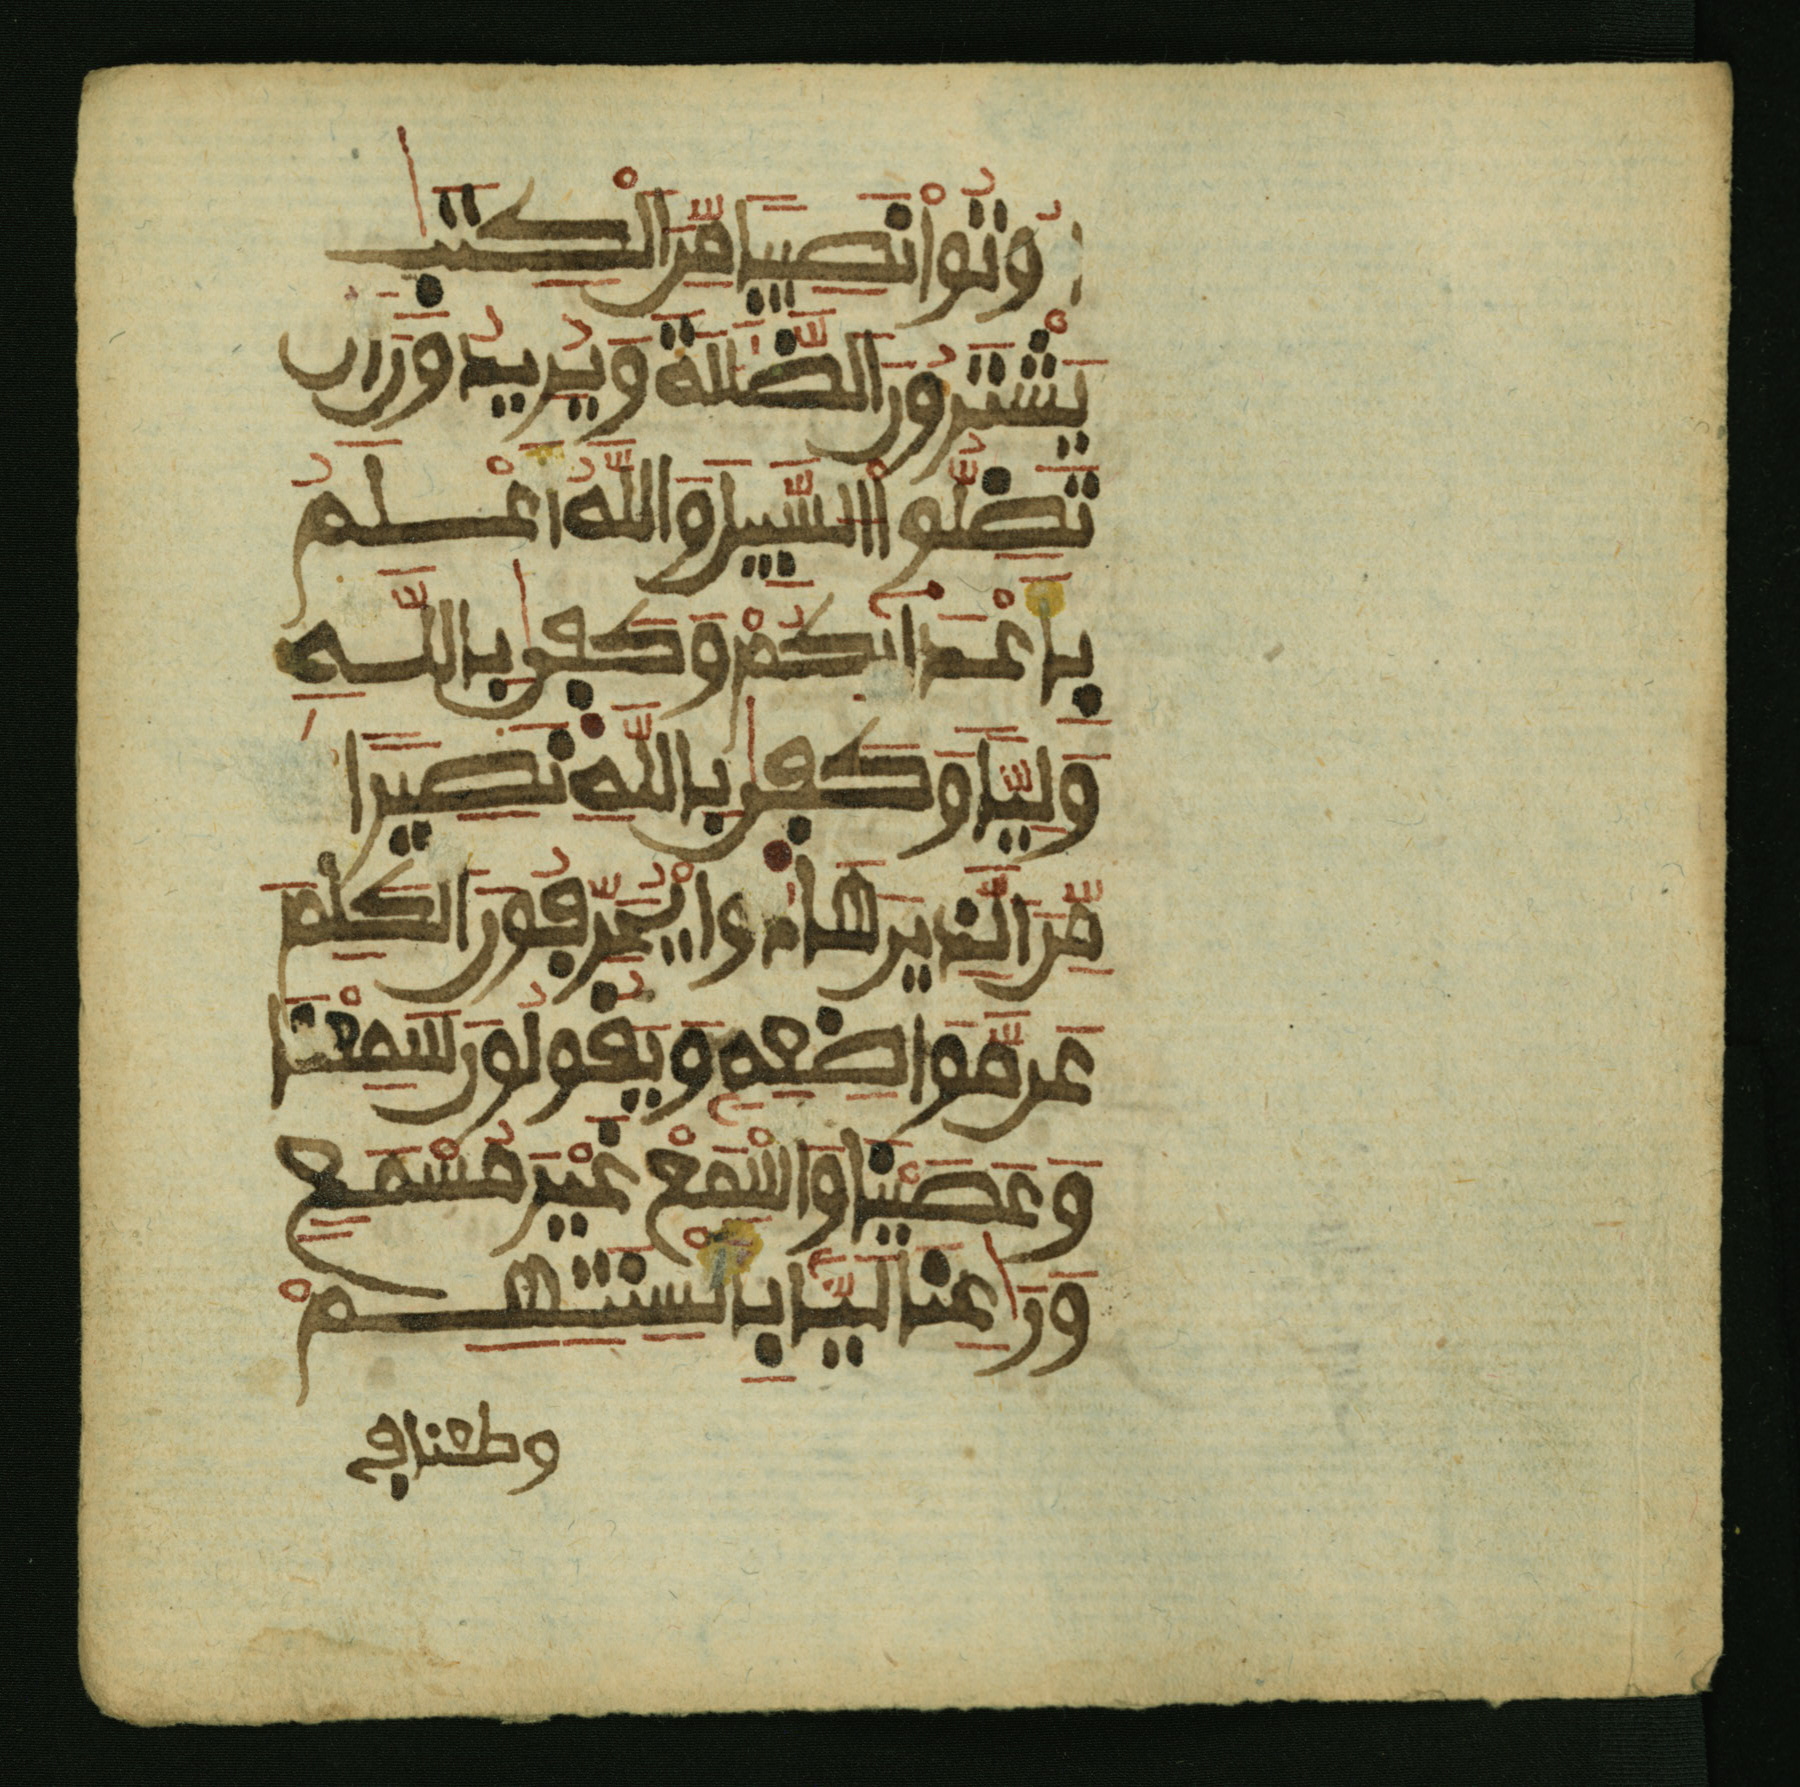 اُوتُواْ نَصِيباً مِّنَ اَ۬لْكِتَٰبِ
يَشْتَرُونَ اَ۬لضَّلَٰلَةَ وَيُرِيدُونَ أَن
تَضِلُّواْ اُ۬لسَّبِيلَ وَاللَّهُ أَعْلَمُ
بِأَعْدَائِكُمْ وَكَفٜىٰ بِاللَّهِ
وَلِيّاً وَكَفٜىٰ بِاللَّهِ نَصِيراً
مِّنَ اَ۬لذِينَ هَادُواْ يُحَرِّفُونَ اَ۬لْكَلِمَ
عَن مَّوَاضِعِهِۦ وَيَقُولُونَ سَمِعْنَا
وَعَصَيْنَا وَاسْمَعْ غَيْرَ مُسْمَعٍ
وَرَٰعِنَا لَيّاً بِأَلْسِنَتِهِمْ
وطعنا فے